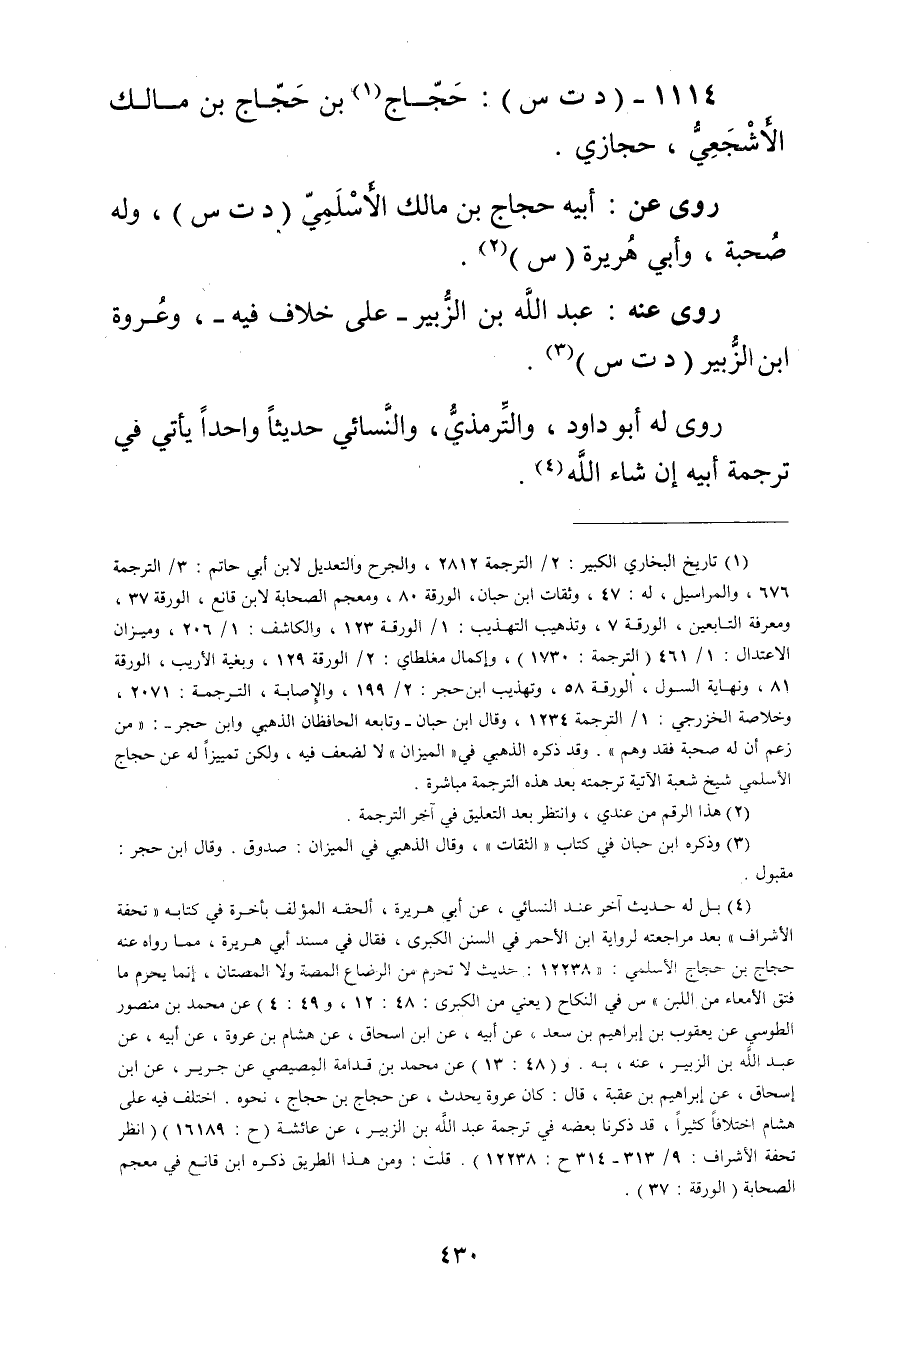 ١١١٤ ـ ( د ت س ) : حَجّـاج(١) بن حَجّـاج بن مـالـك
الأَشْجَعِيُّ ، حجازي .
روى عن : أبيه حجاج بن مالك الأَسْلَمِيّ ( د ت س ) ، وله
صُحبة ، وأبي هُريرة ( س )(٢) .
روى عنه : عبد اللَّه بن الزُّبير ـ على خلاف فيه ـ ، وعُـروة
ابن الزُّبير ( د ت س )(٣) .
روى له أبو داود ، والتِّرمذيُّ، والنَّسائي حديثاً واحداً يأتي في
ترجمة أبيه إن شاء اللَّه(٤) .
(١) تاريخ البخاري الكبير : ٢/ الترجمة ٢٨١٢ ، والجرح والتعديل لابن أبي حاتم : ٣/ الترجمة
٦٧٦ ، والمراسيل ، له : ٤٧ ، وثقات ابن حبان، الورقة ٨٠ ، ومعجم الصحابة لابن قانع ، الورقة ٣٧ ،
ومعرفة التـابعين ، الورقـة ٧ ، وتذهيب التهـذيب : ١/ الورقـة ١٢٣ ، والكاشف : ١/ ٢٠٦ ، وميـزان
الاعتدال : ١/ ٤٦١ ( الترجمة : ١٧٣٠ ) ، وإكمال مغلطاي : ٢/ الورقة ١٢٩ ، وبغية الأريب ، الورقة
٨١ ، ونهـاية السـول ، الورقـة ٥٨ ، وتهذيب ابن حجر : ٢/ ١٩٩ ، والإصـابة ، التـرجمـة : ٢٠٧١ ،
وخلاصة الخزرجي : ١/ الترجمة ١٢٣٤ ، وقال ابن حبان ـ وتابعه الحافظان الذهبي وابن حجر ـ : « من
زعم أن له صحبة فقد وهم » . وقد ذكره الذهبي في « الميزان » لا لضعف فيه ، ولكن تمييزاً له عن حجاج
الأسلمي شيخ شعبة الآتية ترجمته بعد هذه الترجمة مباشرة .
(٢) هذا الرقم من عندي ، وانتظر بعد التعليق في آخر الترجمة .
(٣) وذكره ابن حبان في كتاب « الثقات » ، وقال الذهبي في الميزان : صدوق . وقال ابن حجر :
مقبول .
(٤) بـل له حـديث آخر عنـد النسائي ، عن أبي هـريرة ، ألحقـه المؤلف بأخـرة في كتابـه « تحفة
الأشراف » بعد مراجعته لرواية ابن الأحمر في السنن الكبرى ، فقال في مسند أبي هـريرة ، ممـا رواه عنه
حجاج بن حجاج الأسلمي : « ١٢٢٣٨ : حديث لا تحرم من الرضاع المصة ولا المصتان ، إنما يحرم ما
فتق الأمعاء من اللبن » س في النكاح ( يعني من الكبرى : ٤٨ : ١٢ ، و ٤٩ : ٤ ) عن محمد بن منصور
الطوسي عن يعقوب بن إبراهيم بن سعد ، عن أبيه ، عن ابن اسحاق ، عن هشام بن عروة ، عن أبيه ، عن
عبـد اللَّه بن الزبيـر ، عنه ، بـه . و ( ٤٨ : ١٣ ) عن محمـد بن قـدامة المصيصي عن جـريـر ، عن ابن
إسحاق ، عن إبراهيم بن عقبة ، قال : كان عروة يحدث ، عن حجاج بن حجاج ، نحوه . اختلف فيه على
هشام اختلافاً كثيراً ، قد ذكرنا بعضه في ترجمة عبد اللَّه بن الزبيـر ، عن عائشة ( ح : ١٦١٨٩ ) ( انظر
تحفة الأشراف : ٩/ ٣١٣ ـ ٣١٤ ح : ١٢٢٣٨ ) . قلت : ومن هـذا الطريق ذكـره ابن قانـع في معجم
الصحابة ( الورقة : ٣٧ ) .
٤٣٠